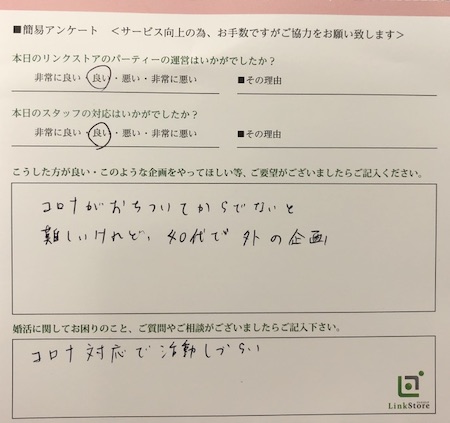 ■簡易アンケート ＜サービス向上の為、お手数ですがご協力をお願い致します＞
本日のリンクストアのパーティーの運営はいかがでしたか？
非常に良い・良い・悪い・非常に悪い ■その理由
本日のスタッフの対応はいかがでしたか？
非常に良い・良い・悪い・非常に悪い ■その理由
こうした方が良い・このような企画をやってほしい等、ご要望がございましたらご記入ください。
コロナがおちついてからでないと
難しいけれど、40代で外の企画
婚活に関してお困りのこと、ご質問やご相談がございましたらご記入下さい。
コロナ対応で活動しづらい
LinkStore